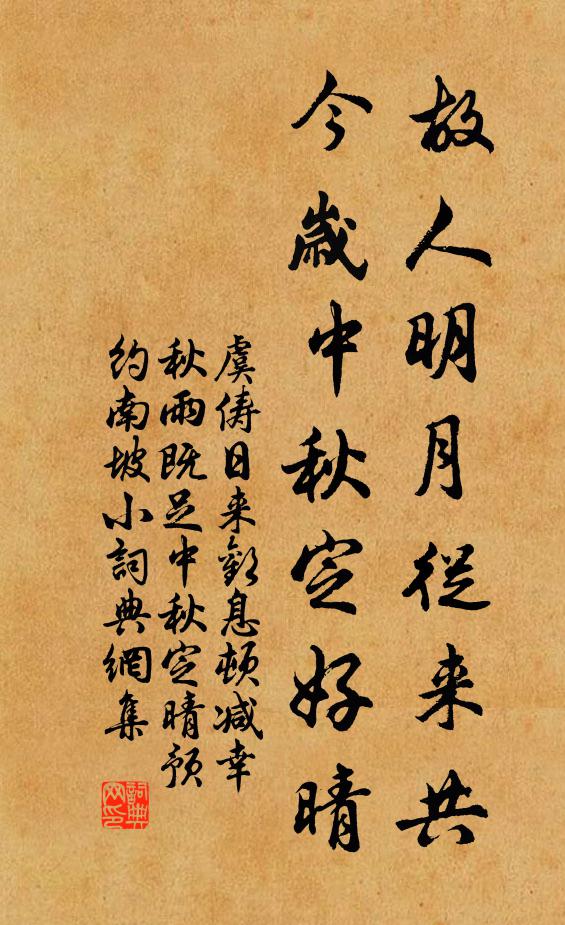 故人明月從来共
今歲中秋定好晴
虞儔日来歎息頓减幸
秋雨既足中秋定晴預
約南坡小詞典網集
詞典
网印